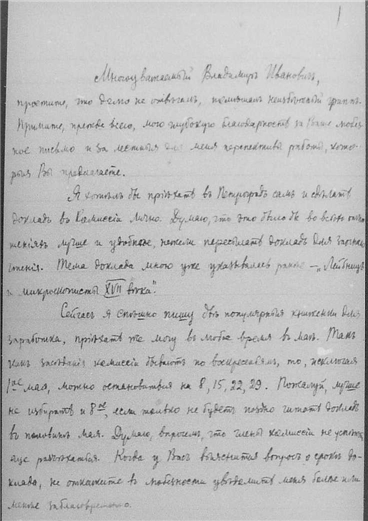 1
Многоуважаемый Владимиръ Ивановичъ,
простите, что долго не отвѣчалъ, помѣшалъ неизбѣжный гриппъ.
Примите, прежде всего, мою глубокую благодарность за Ваше любез-
ное письмо и за лестныя для меня перспективы работъ, кото-
рыя Вы предлагаете.
Я хотѣлъ бы пріѣхать въ Петроградъ самъ и сдѣлать
докладъ въ Комиссіи лично. Думаю, что это было бы во всѣхъ отно-
шеніяхъ лучше и удобнѣе, нежели пересылать докладъ для
Тема доклада мною уже указывалась ранѣе – „Лейбницъ
и микроскописты XVII вѣка“.
Сейчасъ я спѣшно пишу двѣ популярныя книжки для
заработка, пріѣхать же могу въ любое время въ маѣ. Такъ
какъ засѣданія комиссіи бываютъ по воскресеньямъ, то, исключая
1ое мая, можно остановиться на 8, 15, 22, 29. Пожалуй, лучше
не избирать и 8ое, если только не будетъ поздно читать докладъ
въ половинѣ мая. Думаю, впрочемъ, что члены комиссіи не успѣютъ
еще разъѣхаться. Когда у Васъ выяснится вопросъ о срокѣ до-
клада, не откажите въ любезности увѣдомить меня болѣе или
менѣе заблаговременно.